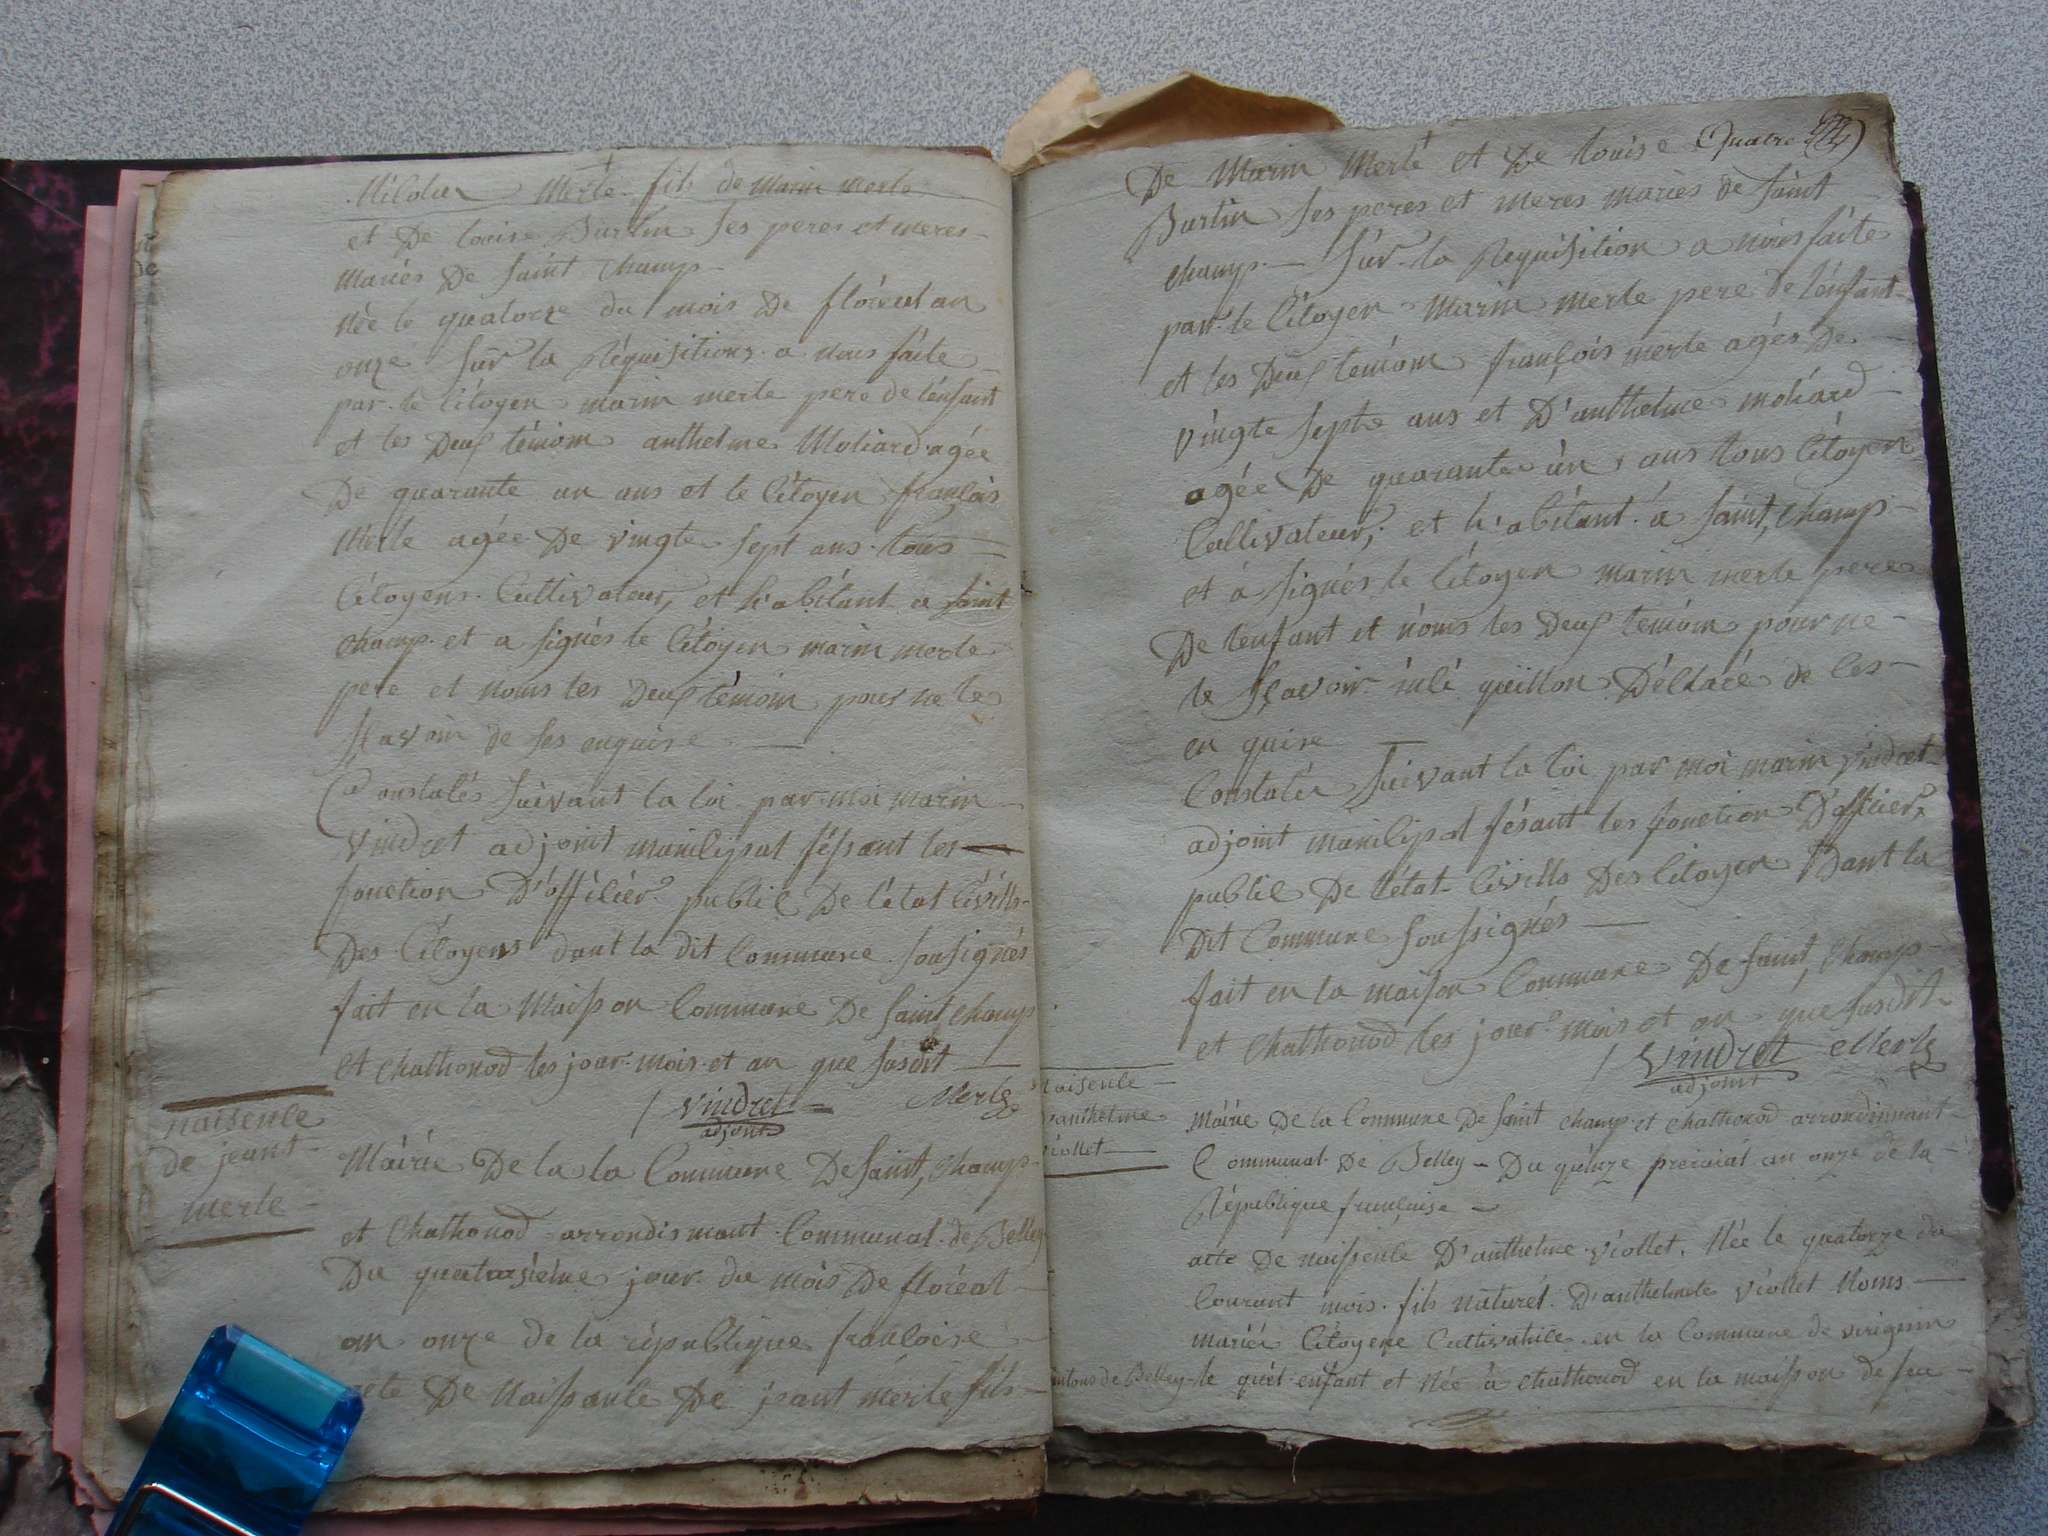 Nicolas Merle fils de Marin Merle
et De Loüise Burtin ses peres et meres
Mariés De Saint Champ
Née le quatorze du mois De floreal an
onze sur la Réquisitions a nous faite
par le Citoyen marin merle pere de l'enfant
et les Deux témoin anthelme Moliard agée
De quarante un ans et le Citoyen françois
Merle agée De vingte sept ans tous
Citoyens Cultivateur, et h'abitant a Saint
Champ et a signés le Citoyen marin merle
pere et noms les Deux témoin pour ne le
sçavoir de ses enquise
Constatés suivant la loi par moi marin
Vindret adjoint municipal fésant les
fonction D'officier public De l'état Civills
Des Citoyens dant la dit Commune sousignés
fait en la Maison Commune De Saint Champ
et Chathonod les jour mois et an que susdit
Vindret Merle
adjoint
naisence
de jeant
merle
Mairie De la la Commune De Saint, Champ
et Chathonod arrondismant Communal de Belley
Du quatorsieme jour du mois De floréal
an onze de la république francoise
acte De Naissance De jeant merle fils
Quatre
De Marin Merle et De Louise
Burtin ses peres et meres mariés de Saint
Champ Sur la Requisition a nous faite
par le Citoyen Marin merle pere de l'enfant
et les Deux temoin françois merle agés De
vingte septe ans et D'anthelme moliard
agée De quarante un ans tous Citoyen
Cultivateur, et h'abitant a Saint, Champ
et a signés le Citoyen marin merle pere
De l'enfant et noms les Deux temoin pour ne
le sçavoir De Ces
en quise
Constatée suivant la loi par moi marin Vindret
adjoint municipal fésant les fonction D'officier
public De l'état Civills Des Citoyen Dant la
Dit Commune soussignés
fait en la maison Commune De Saint, Champ
et Chathonod les jour mois et an que susdit
Vindret Merle
adjoint
naisence
d'anthelme
viollet
Mairie De la Commune De Saint Champ et Chathonod arrondismant
Communal De Belley Du quinze preraial an onze de la
République françoise
acte De naissence D'anthelme viollet. Née le quatorze du
Courant mois. fils naturel D'anthelmete viollet Noms
mariée Citoyene Cultivatrice en la Commune de virignin
Cantons de Belley le quel enfant et Née à Chathonod en la maison de feu